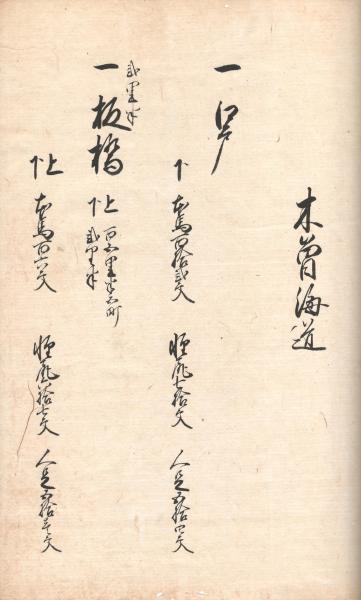 木曽海道
一 江戸
下 本馬百拾弐文 軽尻七拾文 人足五拾四文
弐里半
一 板橋 上 下 弐里半
上 下 本馬百六文 軽尻 人足五拾